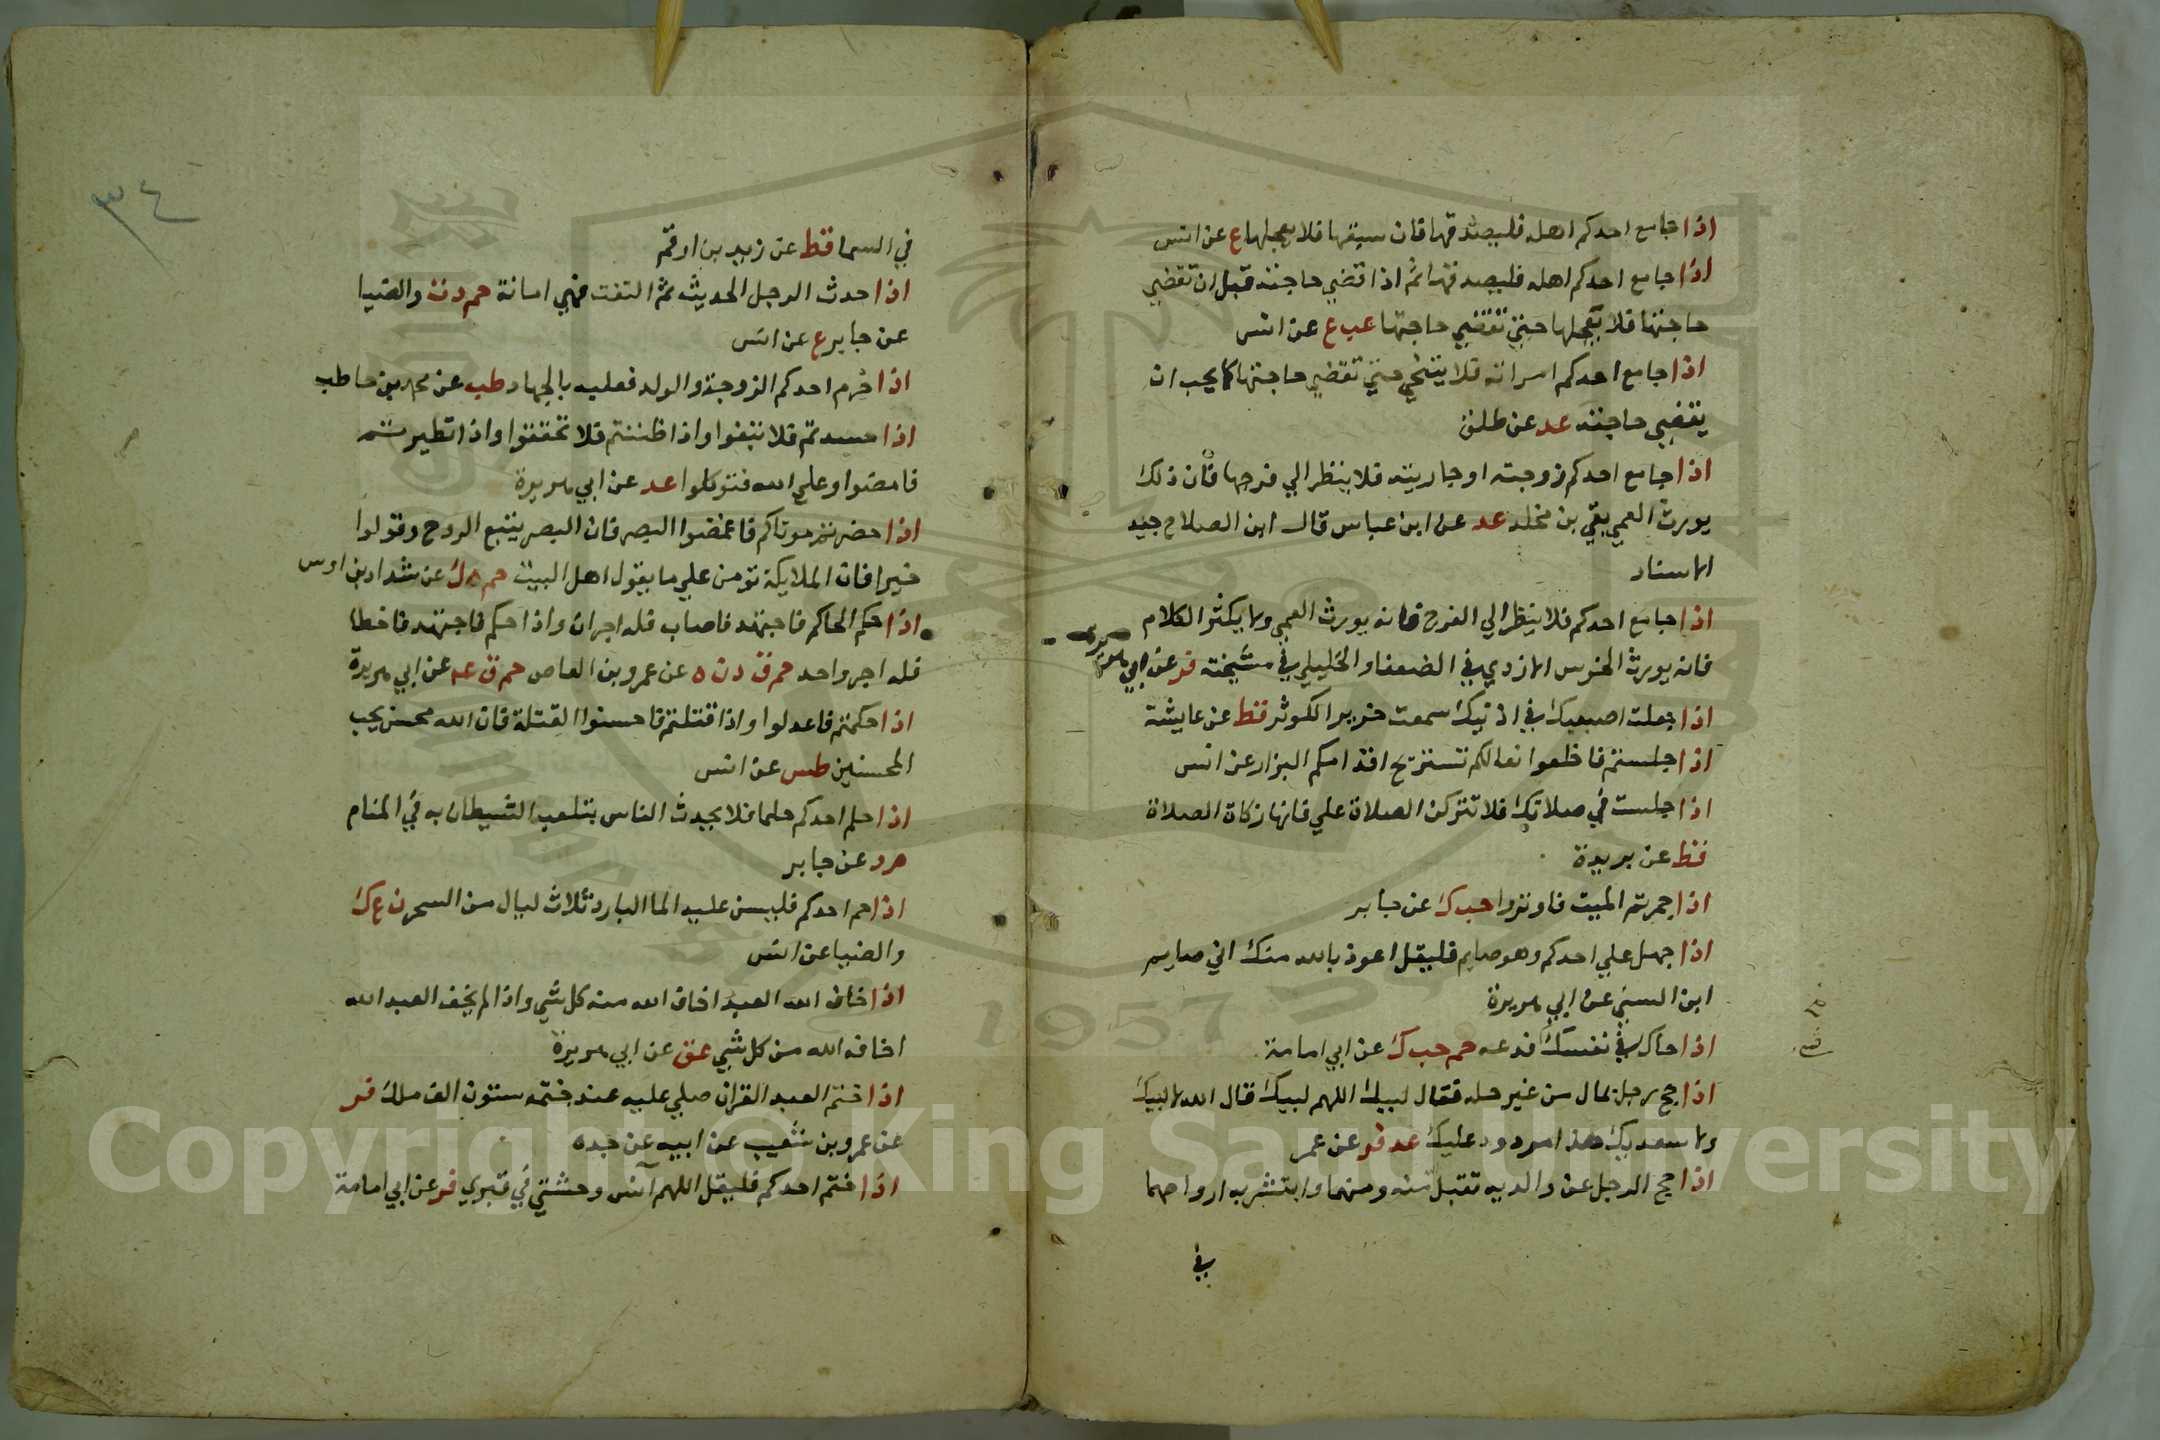 اذا جامع احدكم اهله فليصدقها فان سبقها فلا يعجلها ع عن انس
اذا جامع احدكم اهله فليصدقها ثم اذا قضي حاجته قبل ان تقضي
حاجتها فلا يعجلها حتي تقضي حاجتها عب ع عن انس
اذا جامع احدكم امراته فلا يتنحي حتي تقضي حاجتها كما يحب ان
يقضي حاجته عد عن طلق
اذا جامع احدكم زوجته او جاريته فلا ينظر الي فرجها فان ذلك
يورث العمي بقي بن مخلد عد عن ابن عباس قال ابن الصلاح جيد
الاسناد
اذا جامع احدكم فلا ينظر الي الفرج فانه يورث العمي ولا يكثر الكلام
فانه يورث الخرس الازدي في الضعفا والخليلي في مشيخته فر عن ابي هريرة
اذا جعلت اصبعيك في اذنيك سمعت خرير الكوثر قط عن عايشة
اذا جلستم فاخلعوا نعالكم تستريح اقدامكم البزار عن انس
اذا جلست في صلاتك فلا تتركن الصلاة علي فانها زكاة الصلاة
قط عن بريدة
اذا جمرتم الميت فاوتروا حب ك عن جابر
اذا جهل علي احدكم وهو صايم فليقل اعوذ بالله منك اني صايم
ابن السني عن ابي هريرة
اذا حاك في نفسك فدعه حم حب ك عن ابي امامة
اذا حج رجل بمال من غير حله فقال لبيك اللهم لبيك قال الله لا لبيك
ولا سعديك هذا مردود عليك عد فر عن عمر
اذا حج الرجل عن والديه تقبل منه ومنهما وابتشر به ارواحهما
في
٣٤
في السما قط عن زيد بن ارقم
اذا حدث الرجل الحديث ثم التفت فهي امانة حم د ت والضيا
عن جابر ع عن انس
اذا حرم احدكم الزوجة والولد فعليه بالجهاد طب عن محمد بن حاطب
اذا حسدتم فلا تبغوا واذا ظننتم فلا تحققوا واذا تطيرتم
فامضوا وعلي الله فتوكلوا عد عن ابي هريرة
اذا حضرتم موتاكم فاغمضوا البصر فان البصر يتبع الروح وقولوا
خيرا فان الملايكة تومن علي ما يقول اهل البيت حم ه ك عن شداد بن اوس
اذا حكم الحاكم فاجتهد فاصاب فله اجران واذا حكم فاجتهد فاخطا
فله اجر واحد حم ق د ن ه عن عمرو بن العاص حم ق عه عن ابي هريرة
اذا حكمتم فاعدلوا واذا قتلتم فاحسنوا القتلة فان الله محسن يحب
المحسنين طس عن انس
اذا حلم احدكم حلما فلا يحدث الناس بتلعب الشيطان به في المنام
م ه عن جابر
اذا حم احدكم فليسن عليه الما البارد ثلاث ليال من السحر ن ع ك
والضيا عن انس
اذا خاف الله العبد اخاف الله منه كل شي واذا لم يخف العبد الله
اخافه الله من كل شي عق عن ابي هريرة
اذا ختم العبد القران صلي عليه عند ختمه ستون الف ملك فر
عن عمرو بن شعيب عن ابيه عن جده
اذا ختم احدكم فليقل اللهم آنس وحشتي في قبري فر عن ابي امامة
Copyright © King Saud University
1957